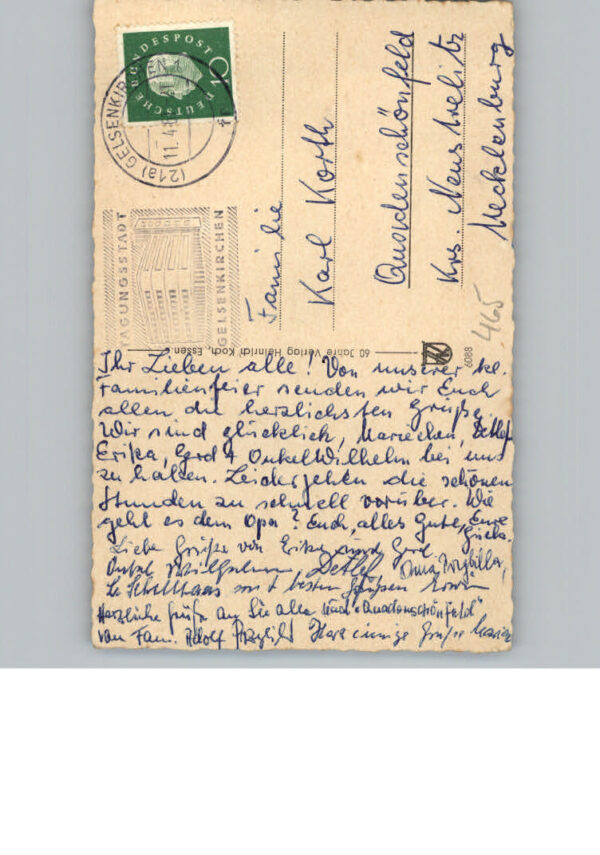 DEUTSCHE BUNDESPOST
(21a) GELSENKIRCHEN 1
11. 4.
TAGUNGSSTADT
GELSENKIRCHEN
Familie
Karl Korth
Quadenschönfeld
Krs. Neustrelitz
Mecklenburg
465
60 Jahre Verlag Heinrich Koch, Essen
6088
Ihr Lieben alle! Von unserer kl.
Familienfeier senden wir Euch
allen die herzlichsten Grüße.
Wir sind glücklich, Mariechen, Detlef,
Erika, Gerd + Onkel Wilhelm bei uns
zu haben. Leider gehen die schönen
Stunden zu schnell vorüber. Wie
geht es dem Opa? Euch alles Gute, Eure
Liebe Grüße von Erika und Gerd
Onkel Wilhelm, Detlef
besten Grüßen
Herzliche Grüße an Sie alle und "Quadenschönfeld"
von Fam. Adolf Grüße